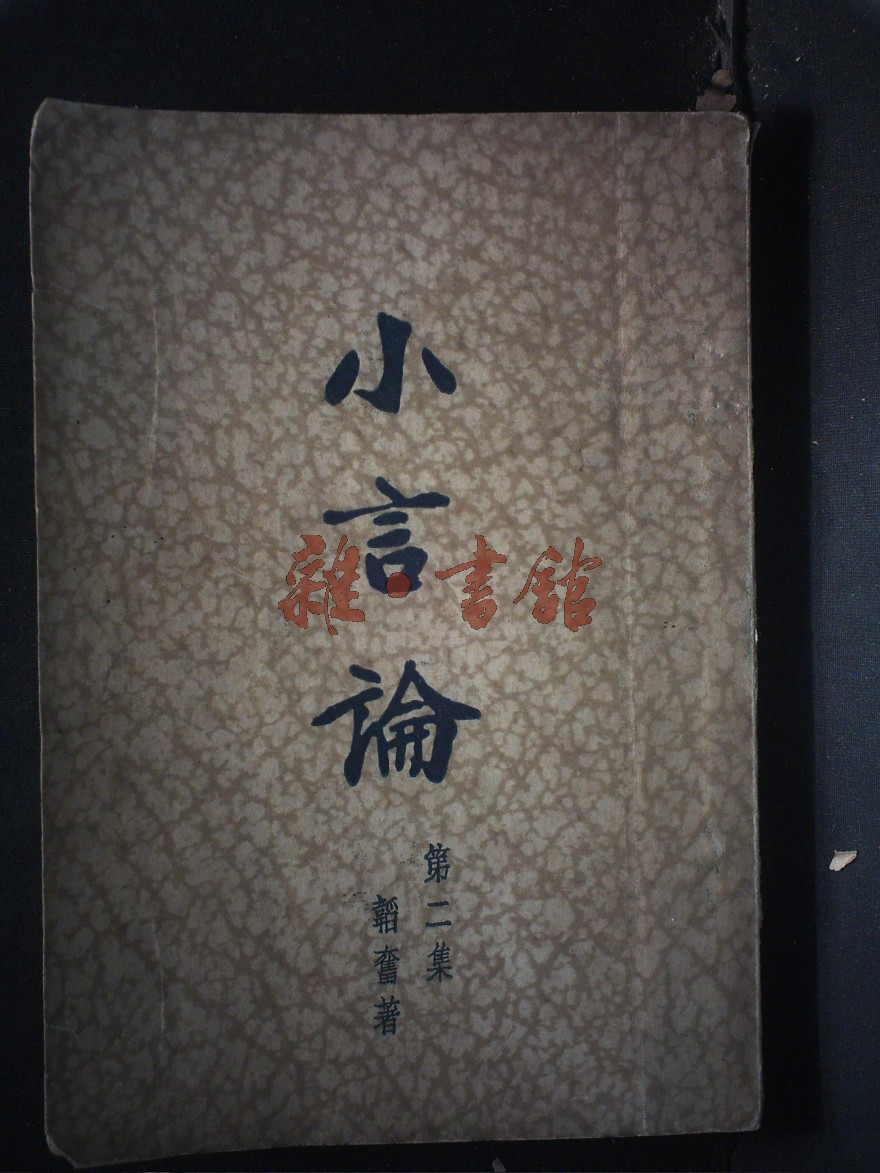 小言論
第二集
韜奮著
雜·書館